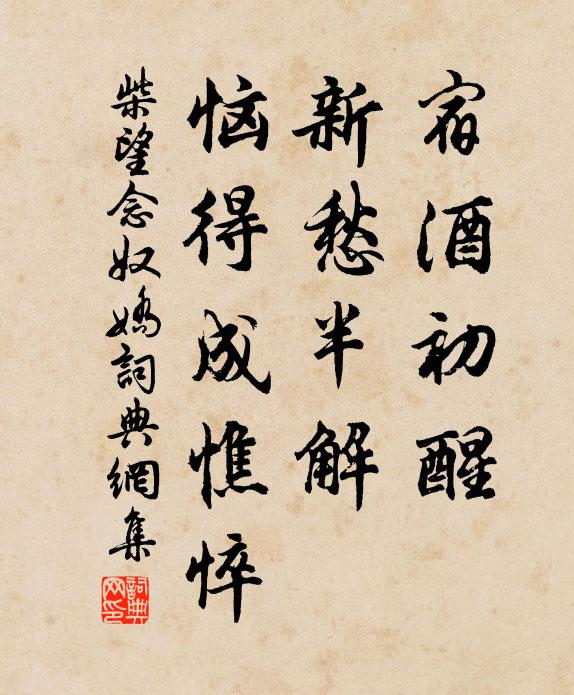 宿酒初醒
新愁半解
恼得成憔悴
柴望念奴娇詞典網集
詞典网印